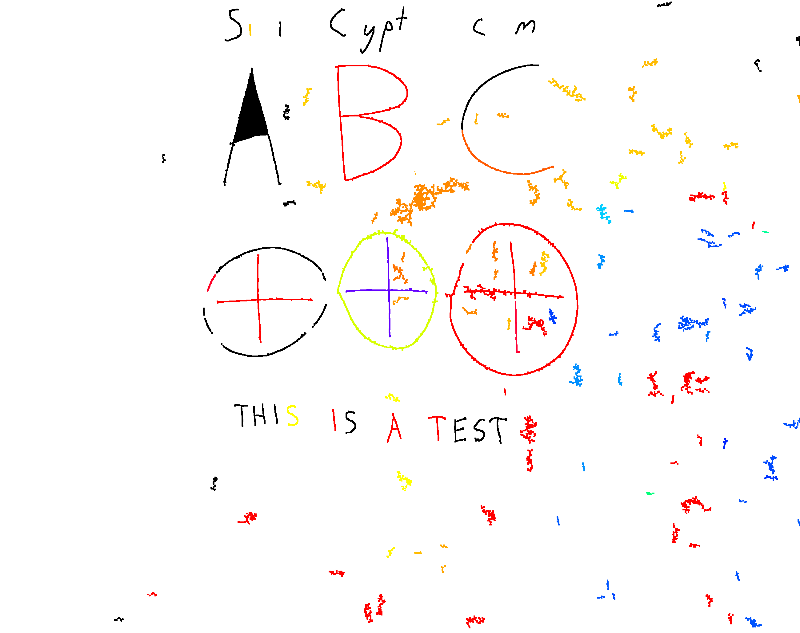 Sii Cypt cm
A B C
THIS IS A TEST